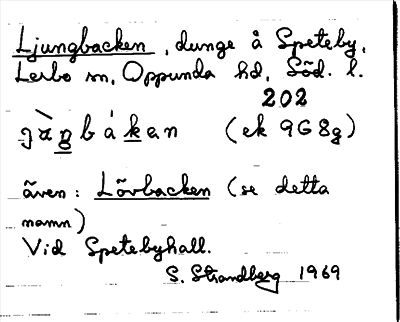 Ljungbacken, dunge å Speteby,
Lerbo sn, Oppunda hd, Söd. l.
202
jàgbákan (ek 9G8g)
även: Lövbacken (se detta
namn)
Vid Spetebyhall.
S. Strandberg 1969